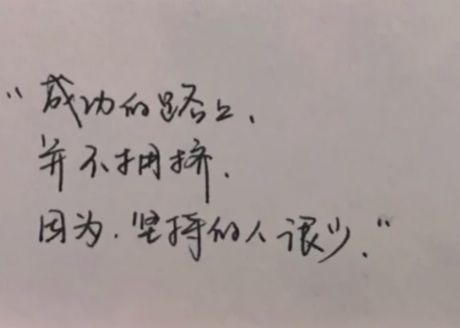 “成功的路上,
并不拥挤.
因为.坚持的人很少.”